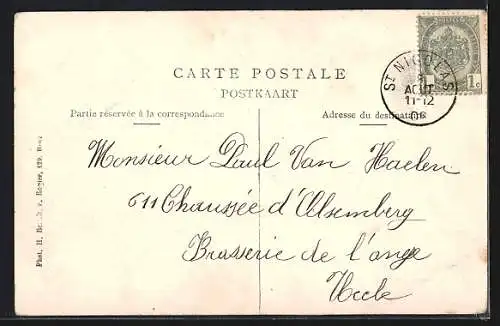 CARTE POSTALE
POSTKAART
Partie réservée à la correspondance
Adresse du destinataire
ST NICOLAS
AOUT
11-12
08
1c
Monsieur Paul Van Haelen
611 Chaussée d'Alsemberg
Brasserie de l'ange
Uccle
Phot. H. Rogier, 129,